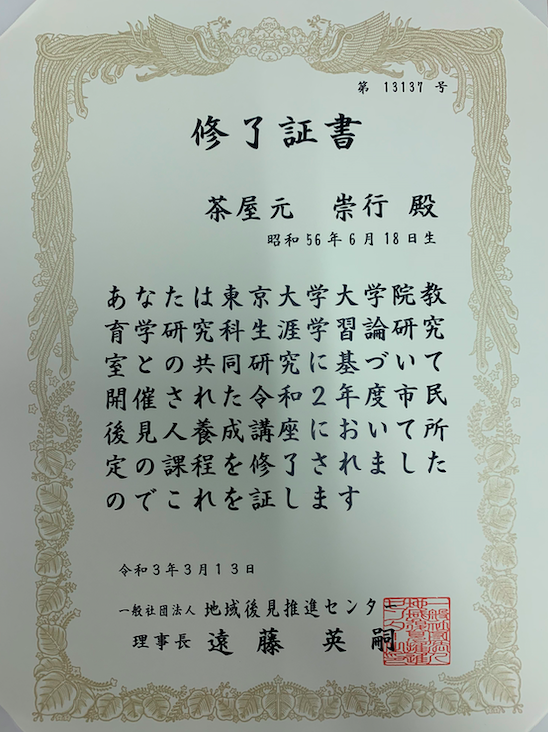 第 13137 号
修了証書
茶屋元 崇行 殿
昭和56年6月18日生
あなたは東京大学大学院教
育学研究科生涯学習論研究
室との共同研究に基づいて
開催された令和2年度市民
後見人養成講座において所
定の課程を修了されました
のでこれを証します
令和3年3月13日
一般社団法人 地域後見推進センター
理事長 遠藤 英嗣